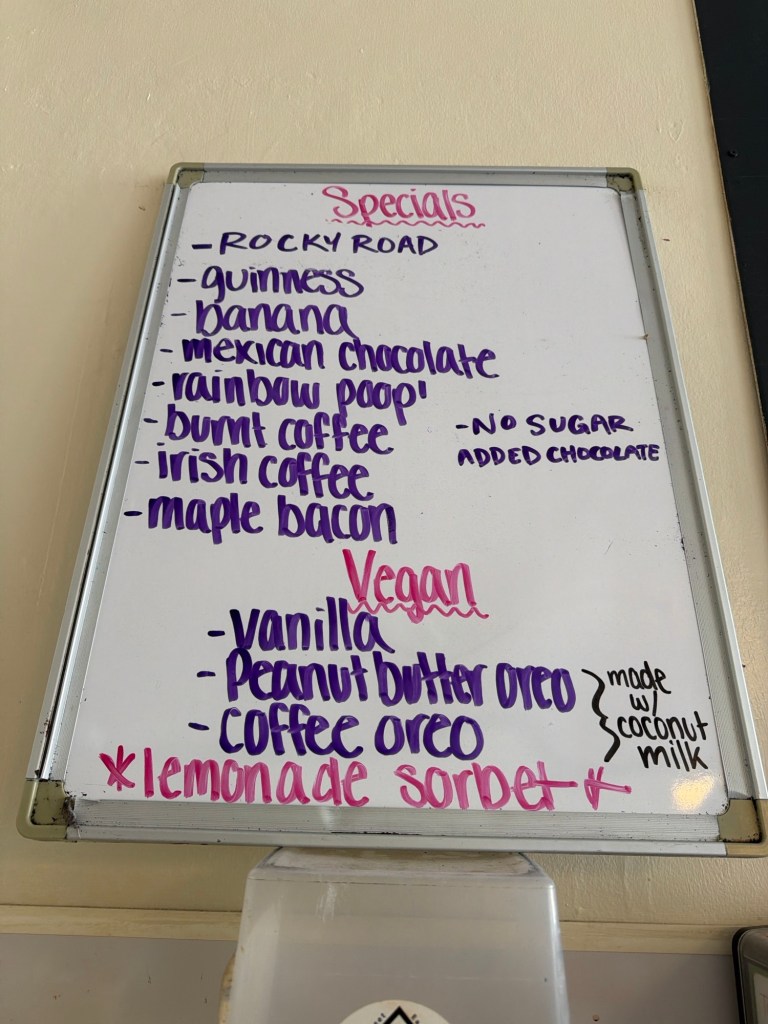 Specials
- ROCKY ROAD
- guinness
- banana
- mexican chocolate
- rainbow poop'
- burnt coffee
- irish coffee
- maple bacon
- NO SUGAR
ADDED CHOCOLATE
Vegan
- vanilla
- Peanut butter oreo
- coffee oreo
made
w/
coconut
milk
*lemonade sorbet*